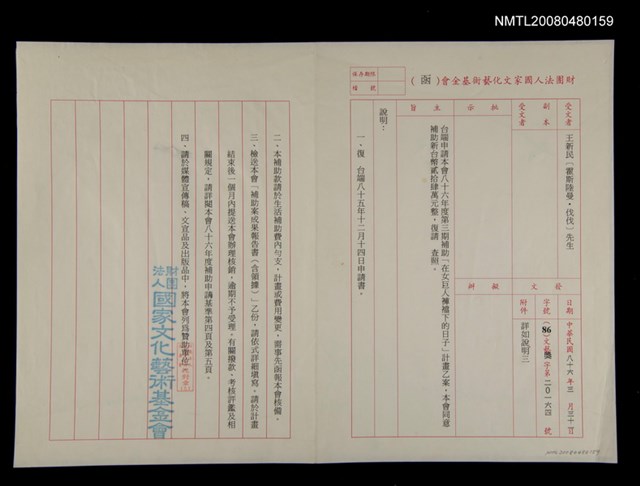 NMTL20080480159
財團法人國家文化藝術基金會（函）
保存期限
檔號
受文者
王新民（霍斯陸曼・伐伐）先生
副本
受文者
批示
發文
日期
中華民國八十六年三月三十日
字號
（86）文藝獎字第二〇一六四號
附件
詳如說明三
擬辦
主旨
台端申請本會八十六年度第三期補助「在女巨人褲襠下的日子」計畫乙案，本會同意
補助新台幣貳拾肆萬元整，復請　查照。
說明：
一、復　台端八十五年十二月十四日申請書。
二、本補助款請於生活補助費內勻支，計畫或費用變更，需事先函報本會核備。
三、檢送本會「補助案成果報告書（含領據）」乙份，請依式詳細填寫，請於計畫
結束後一個月內提送本會辦理核銷，逾期不予受理。有關撥款、考核評鑑及相
關規定，請詳閱本會八十六年度補助申請基準第四頁及第五頁。
四、請於媒體宣傳稿、文宣品及出版品中，將本會列為贊助單位。
財團
法人
國家文化藝術基金會
NMTL20080480159